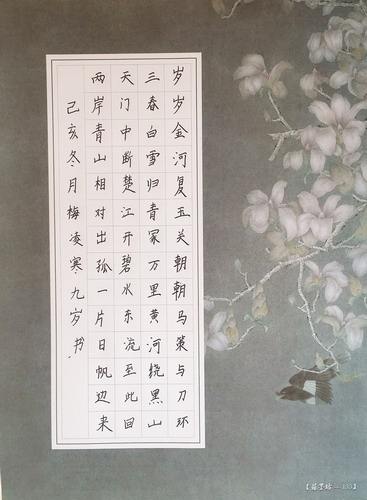 岁岁金河复玉关朝朝马策与刀环
三春白雪归青冢万里黄河绕黑山
天门中断楚江开碧水东流至此回
两岸青山相对出孤一片日帆边来
己亥冬月梅凌寒九岁书